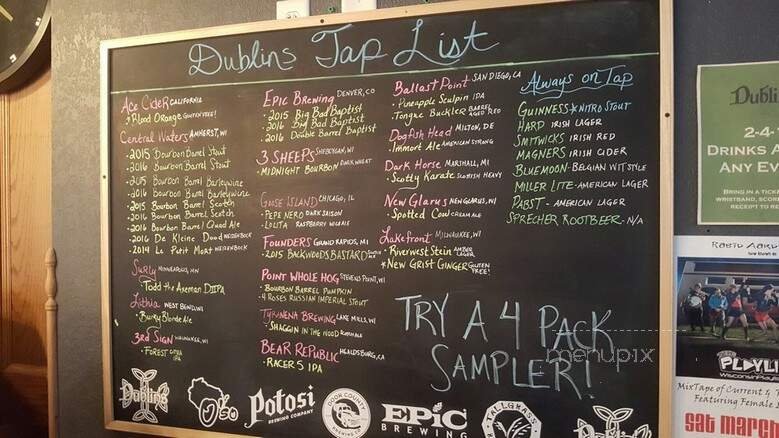 Dublins Tap List
Ace Cider CALIFORNIA
• Blood Orange GLUTEN FREE!
Central Waters AMHERST, WI
• 2015 Bourbon Barrel Stout
• 2016 Bourbon Barrel Stout
• 2015 Bourbon Barrel Barleywine
• 2016 Bourbon Barrel Barleywine
• 2015 Bourbon Barrel Scotch
• 2016 Bourbon Barrel Scotch
• 2016 Bourbon Barrel Quad Ale
• 2016 De Kleine Dood WEIZENBOCK
• 2014 Le Petit Mort WEIZENBOCK
Surly MINNEAPOLIS, MN
• Todd the Axeman DIIPA
Lithia WEST BEND, WI
• Blonde Ale
3rd Sign MILWAUKEE, WI
• FOREST IPA
EPIC BREWING DENVER, CO
• 2015 Big Bad Baptist
• 2016 Big Bad Baptist
• 2016 Double Barrel Baptist
3 SHEEPS SHEBOYGAN, WI
• MIDNIGHT BOURBON DARK WHEAT
GOOSE ISLAND CHICAGO, IL
• PEPE NERO DARK SAISON
• LOLITA RASPBERRY WILD ALE
FOUNDERS GRAND RAPIDS, MI
• 2015 BACKWOODS BASTARD
POINT WHOLE HOG STEVENS POINT, WI
• BOURBON BARREL PUMPKIN
• 4 ROSES RUSSIAN IMPERIAL STOUT
TYRANENA BREWING LAKE MILLS, WI
• SHAGGIN IN THE WOOD
BEAR REPUBLIC HEALDSBURG, CA
• RACER 5 IPA
Ballast Point SAN DIEGO, CA
• Pineapple Sculpin IPA
• Tongue Buckler BARREL AGED RED
Dogfish Head MILTON, DE
• Immort Ale AMERICAN STRONG
Dark Horse MARSHALL, MI
• Scotty Karate SCOTTISH HEAVY
New Glarus NEW GLARUS, WI
• Spotted Cow CREAM ALE
Lakefront MILWAUKEE, WI
• Riverwest Stein AMBER LAGER
* New Grist GINGER GLUTEN FREE!
Always on Tap
GUINNESS * NITRO STOUT
HARP IRISH LAGER
SMITWICKS IRISH RED
MAGNERS IRISH CIDER
BLUEMOON - BELGIAN WIT STYLE
MILLER LITE - AMERICAN LAGER
PABST - AMERICAN LAGER
SPRECHER ROOTBEER - N/A
TRY A 4 PACK
SAMPLER!
menupix
Dublins
Potosi
BREWING COMPANY
DOOR COUNTY
BREWING CO
EPIC
BREWING
TALLGRASS
Dubli
2-4-
DRINKS A
ANY EV
BRING IN A TICK
WRISTBAND, SCORE
RECEIPT TO RE
PLAYLI
WisconsinPlayli
MixTape of Current & T
Featuring Female
Sat March